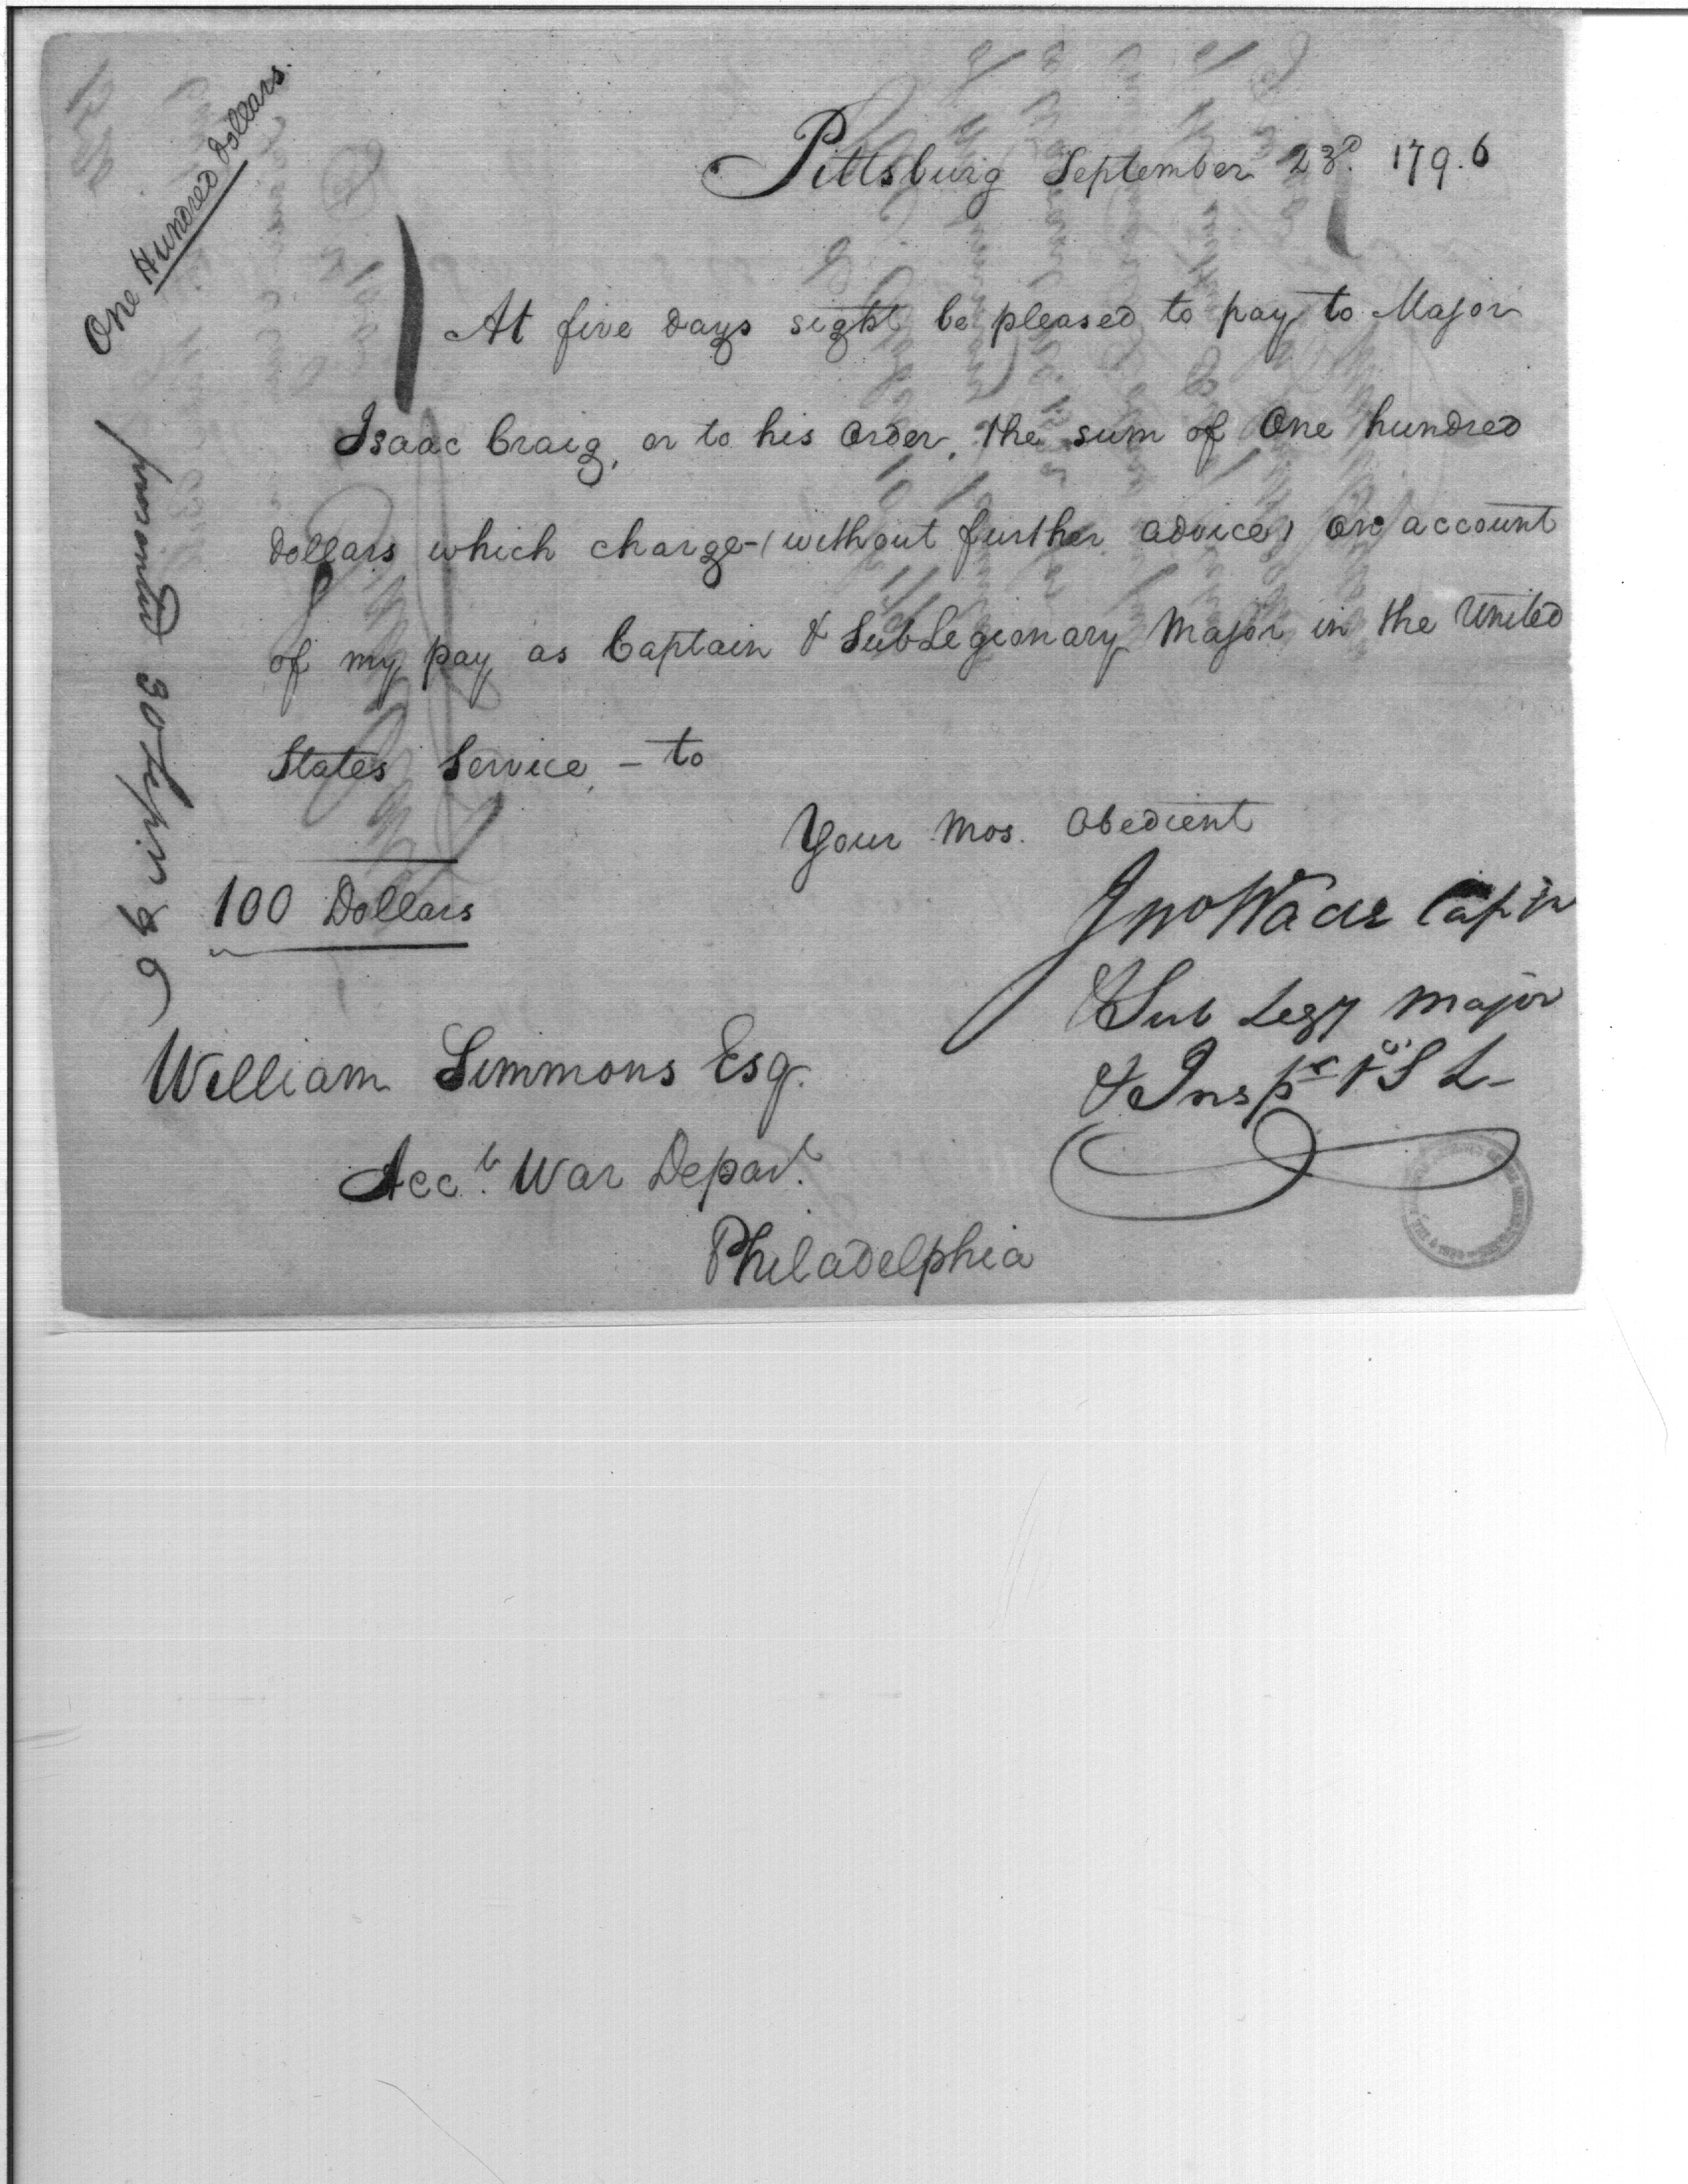 One Hundred Dollars.
Pittsburg September 23d. 179.6
At five days sight be pleased to pay to Major
Isaac Craig, or to his order, the sum of One hundred
dollars which charge (without further advice) on account
of my pay as Captain & SubLegionary Major in the United
States Service, – to
Your Mos. Obedient
Jno Wade Captn
& Sub Legy Major
& Inspr
100 Dollars
William Simmons Esq.
Acct. War Depart.
Philadelphia
presented 30 Sepr 96